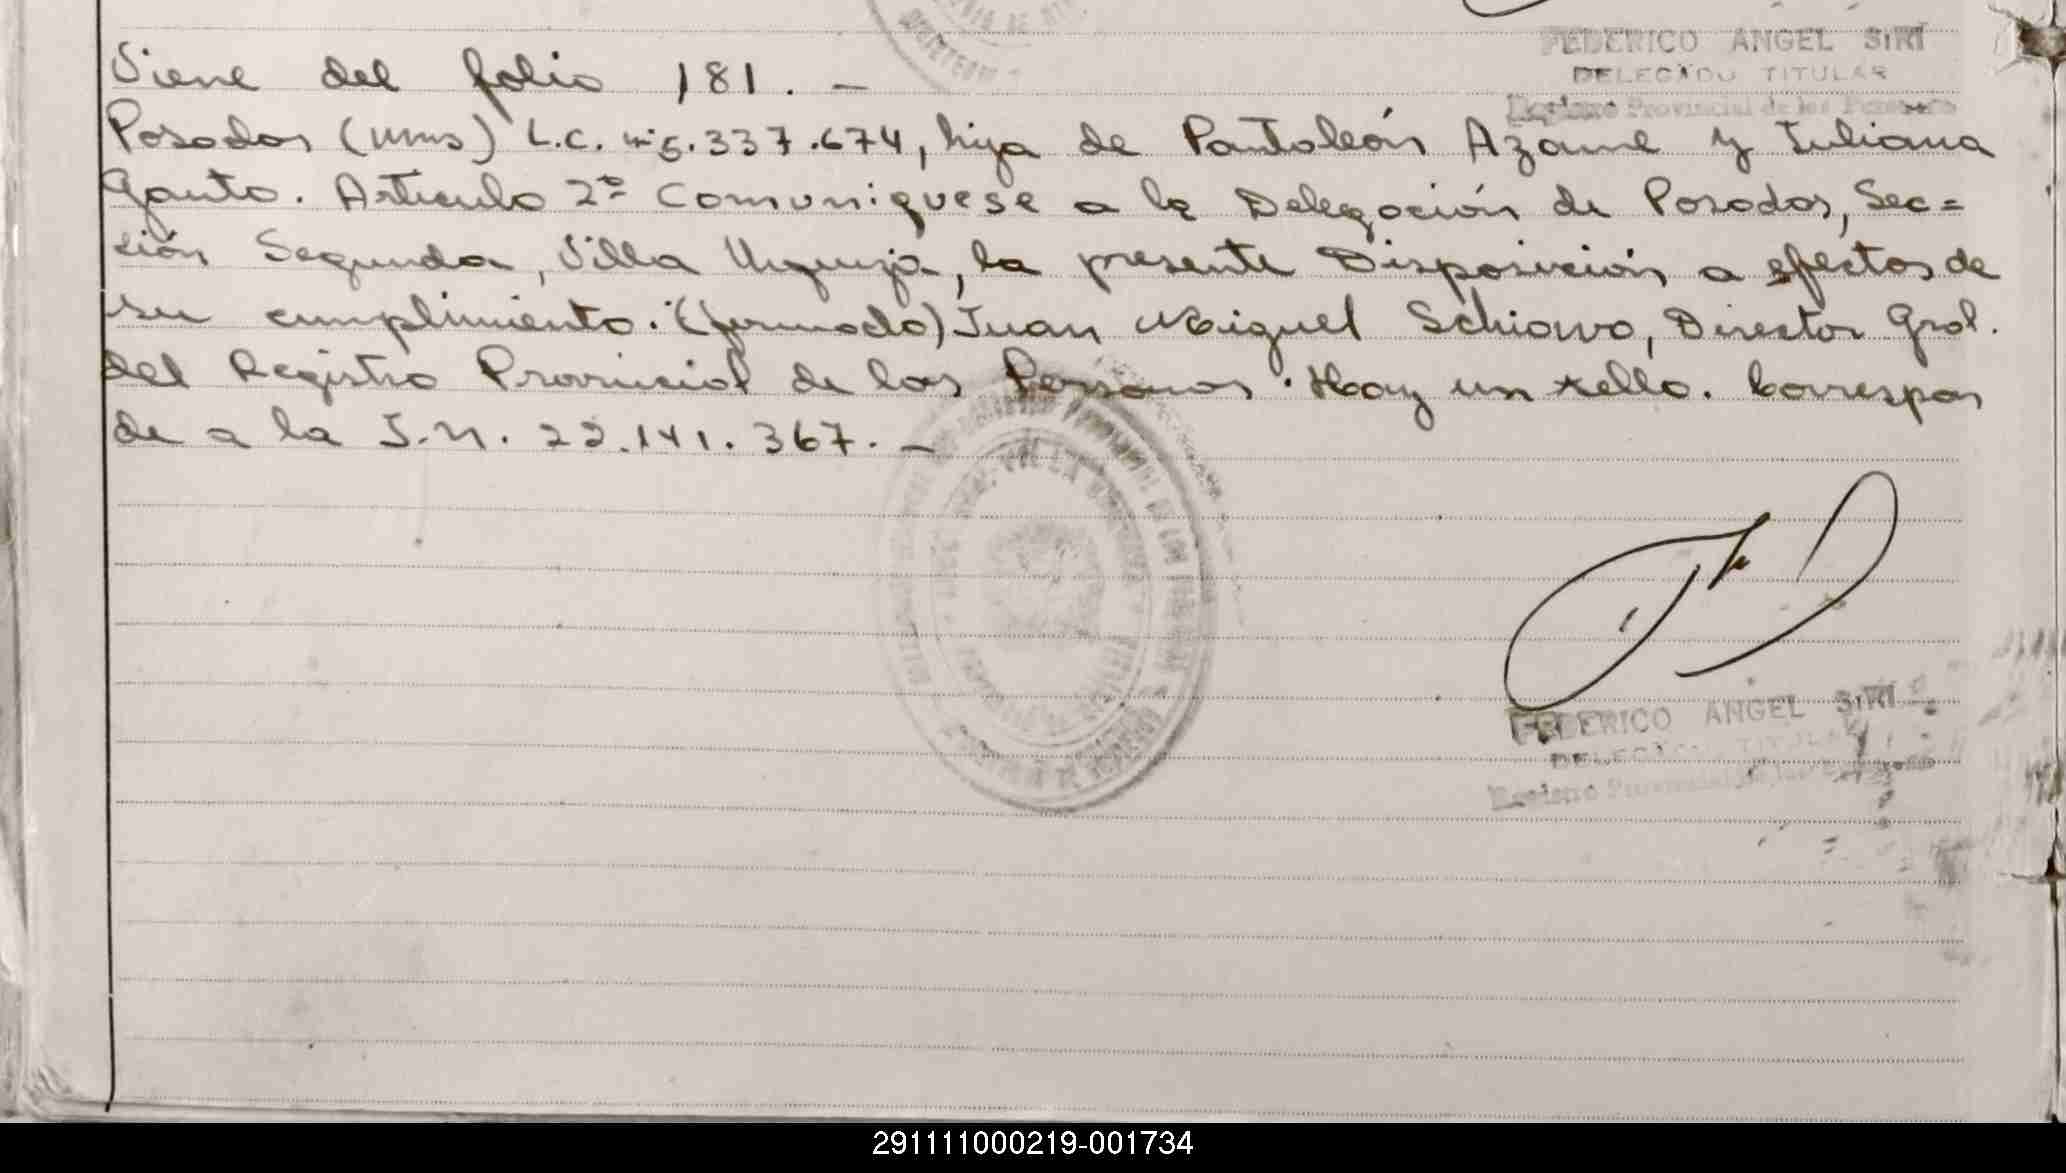 FEDERICO ANGEL SIRI
DELEGADO TITULAR
Registro Provincial de las Personas
Viene del folio 181. —
Posadas (Mnes) L.C. nº 5.337.674, hija de Pantaleón Azame y Juliana
Gauto. Artículo 2º Comuniquese a la Delegación de Posadas, Sec=
ción Segunda, Villa Urquiza, la presente Disposición a efectos de
su cumplimiento. (firmado) Juan Miguel Schiavo, Director Gral.
del Registro Provincial de las Personas. Hay un sello. Correspon
de a la I.N. 22.141.367. —
FEDERICO ANGEL SIRI
DELEGADO TITULAR
Registro Provincial de las Personas
291111000219-001734